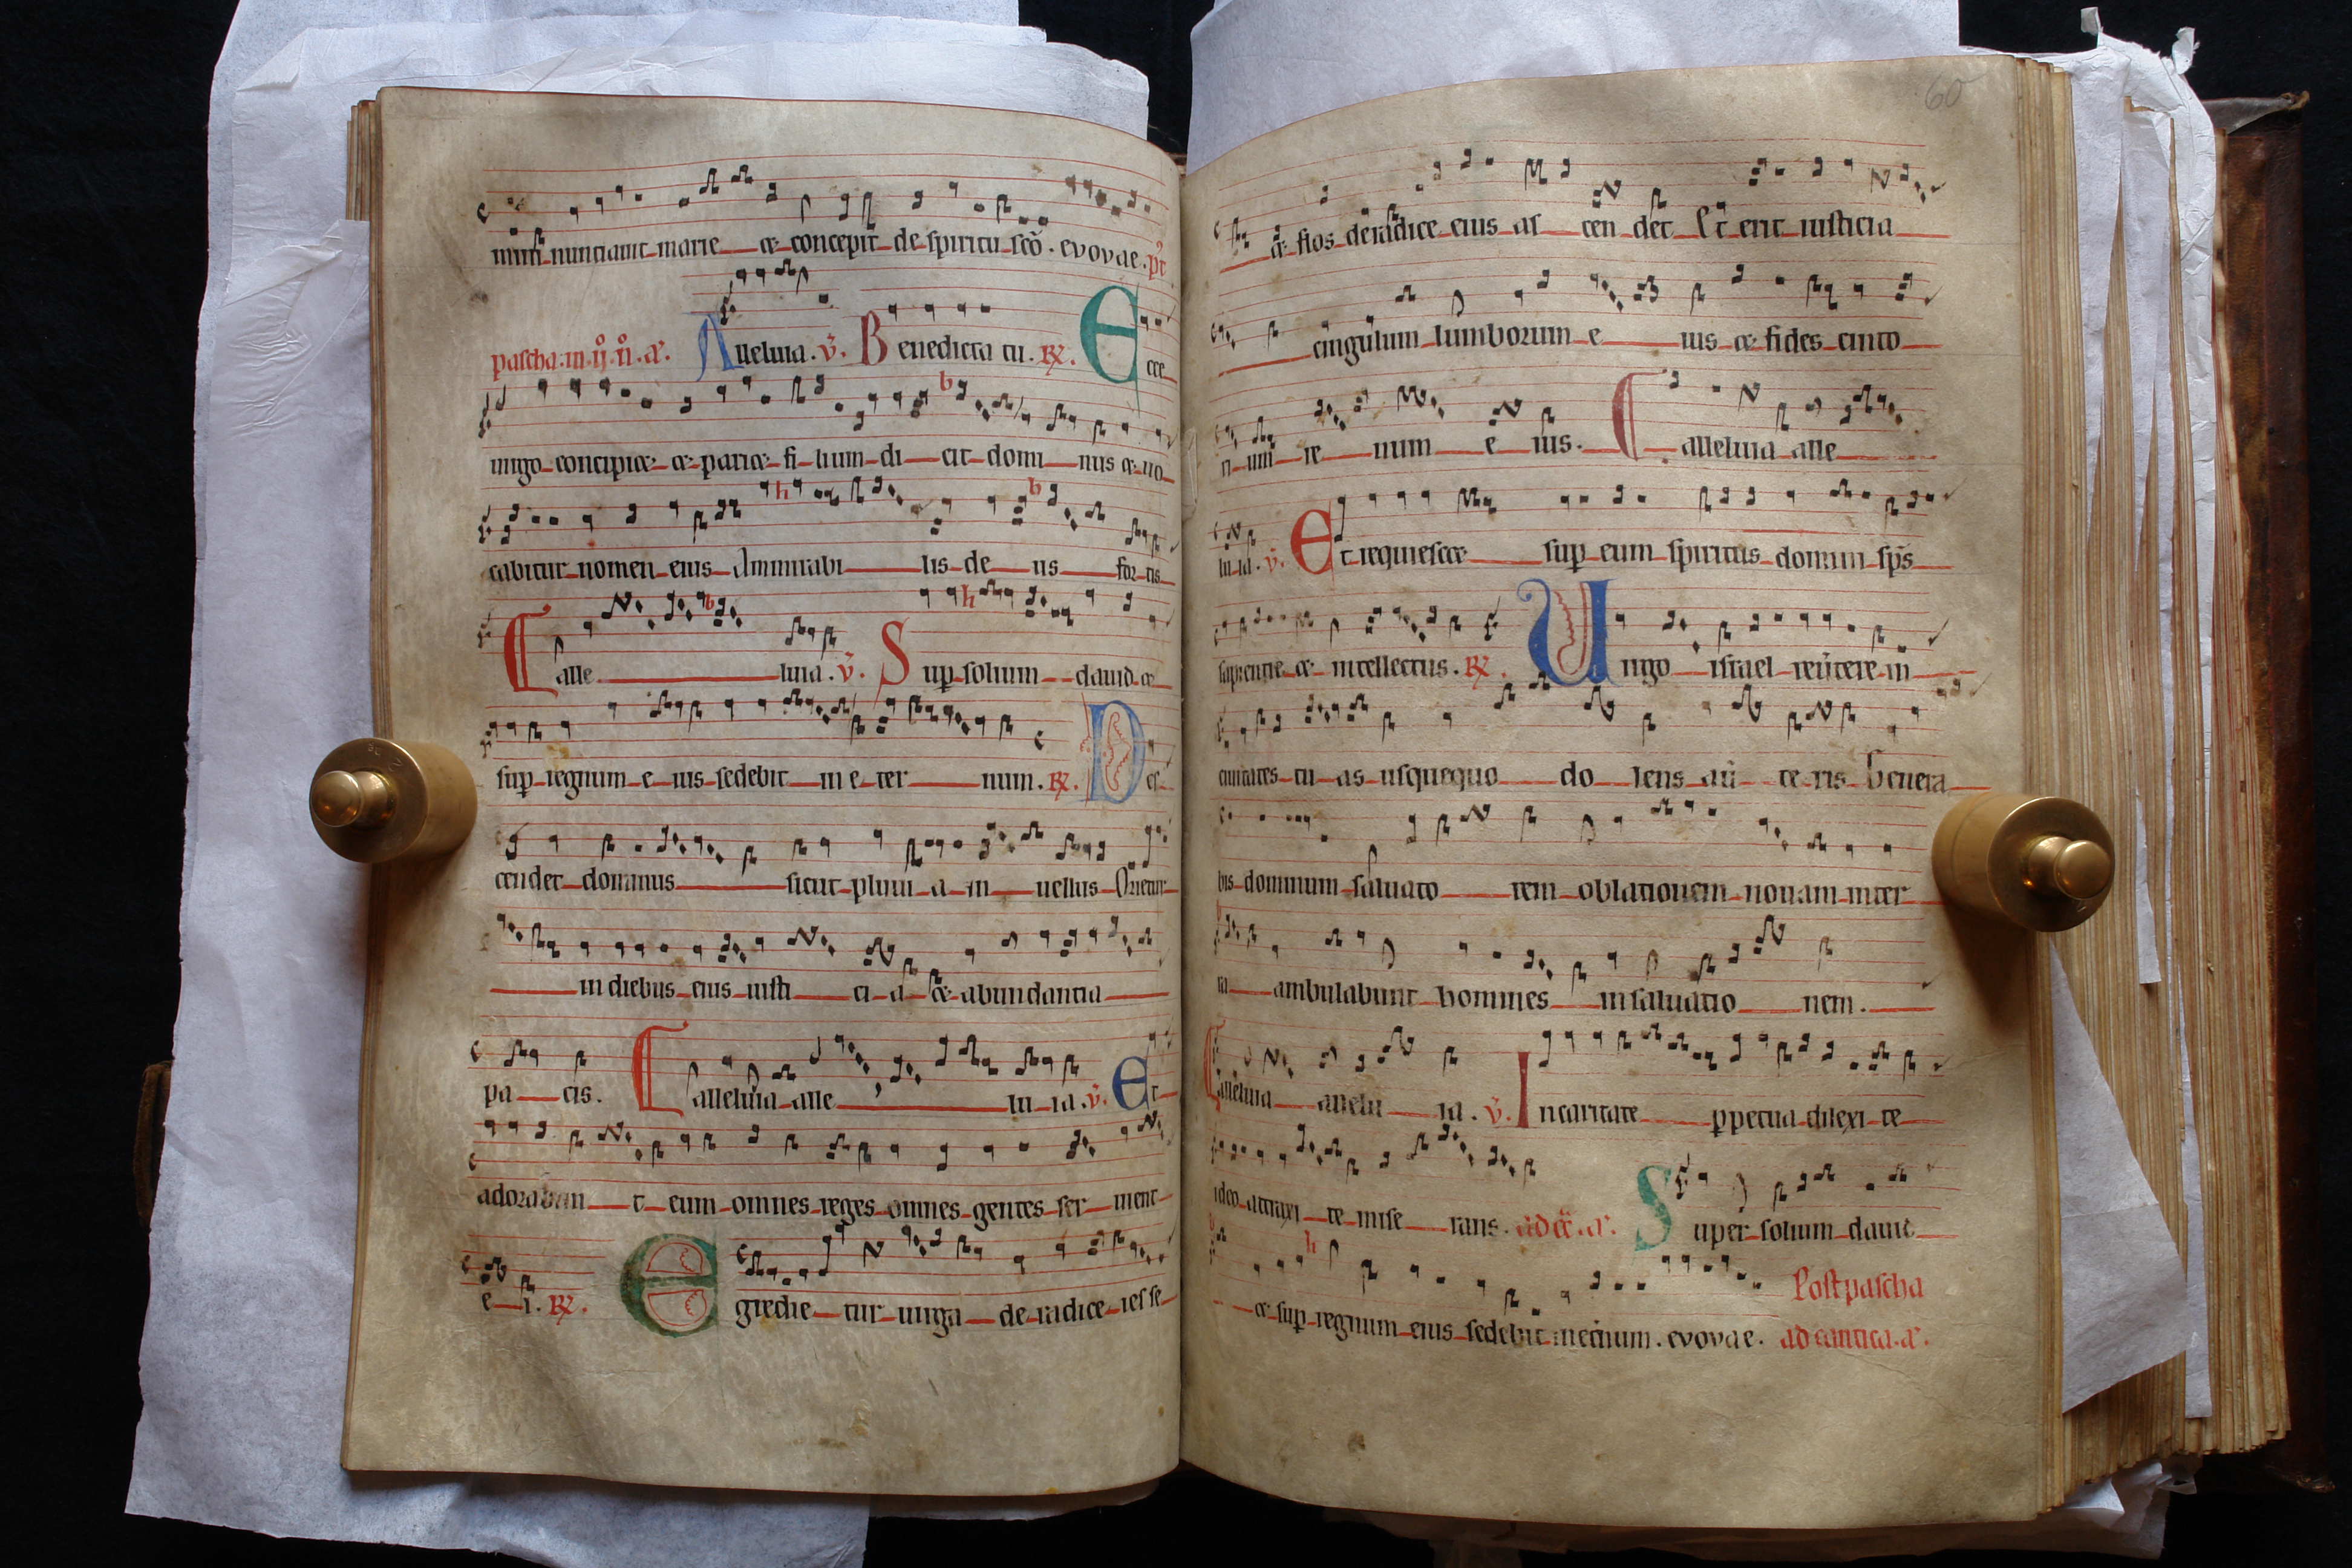 mini nunciauit marie et concepit de spiritu sco . evovae . pt
pascha . in . ij . n . a . Alleluia . v . Benedicta tu . R . Ecce
uirgo concipiet et pariet filium dicit dominus et uo
cabitur nomen eius Ammirabilis deus fortis
C alleluia . v . Sup solium dauid et
sup regnum eius sedebit in eternum . R . Des
cendet dominus sicut pluuia in uellus Orietur
in diebus eius iusticia et abundantia
pacis . C alleluia alleluia . v . Et
adorabunt eum omnes reges omnes gentes seruient
ei . R . Egredietur uirga de radice iesse
60
et flos de radice eius ascendet Et erit iusticia
cingulum lumborum eius et fides cincto
rium renum eius . C alleluia alle
luia . v . Et requiescet sup eum spiritus domini sps
sapientie et intellectus . R . Uirgo israel reuertere in
ciuitates tuas usquequo dolens auerteris Genera
bis dominum saluatorem oblationem nouam in ter
ra ambulabunt homines in saluationem .
C alleluia alleluia . v . In caritate ppetua dilexi te
ideo attraxi te miserans . ad . a . Super solium dauid
et sup regnum eius sedebit in eternum . evovae . Post pascha
ad cantica . a .